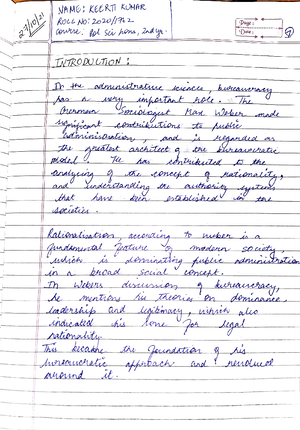 NAME: KEERTI KUMAR
ROLL NO: 2020/1742
course, Pol Sci hons, 2nd yr.
Page:
Date:
INTRODUCTION:
In the administrative sciences, bureaucracy
has a very important role. The
German Sociologist Max Weber made
significant contributions to public
administration, and is regarded as
the greatest architect of the bureaucratic
model. He has contributed to the
analysing of the concept of rationality,
and understanding the authority systems
that have been established in the
societies.
Rationalisation, according to weber is a
fundamental feature of modern society,
which is dominating public administration
in a broad social concept.
In Webers discussion of bureaucracy,
he mentions his theories on dominance,
leadership and legitimacy, which also
indicated his love for legal
rationality.
This became the foundation of his
bureaucratic approach and revolved
around it.